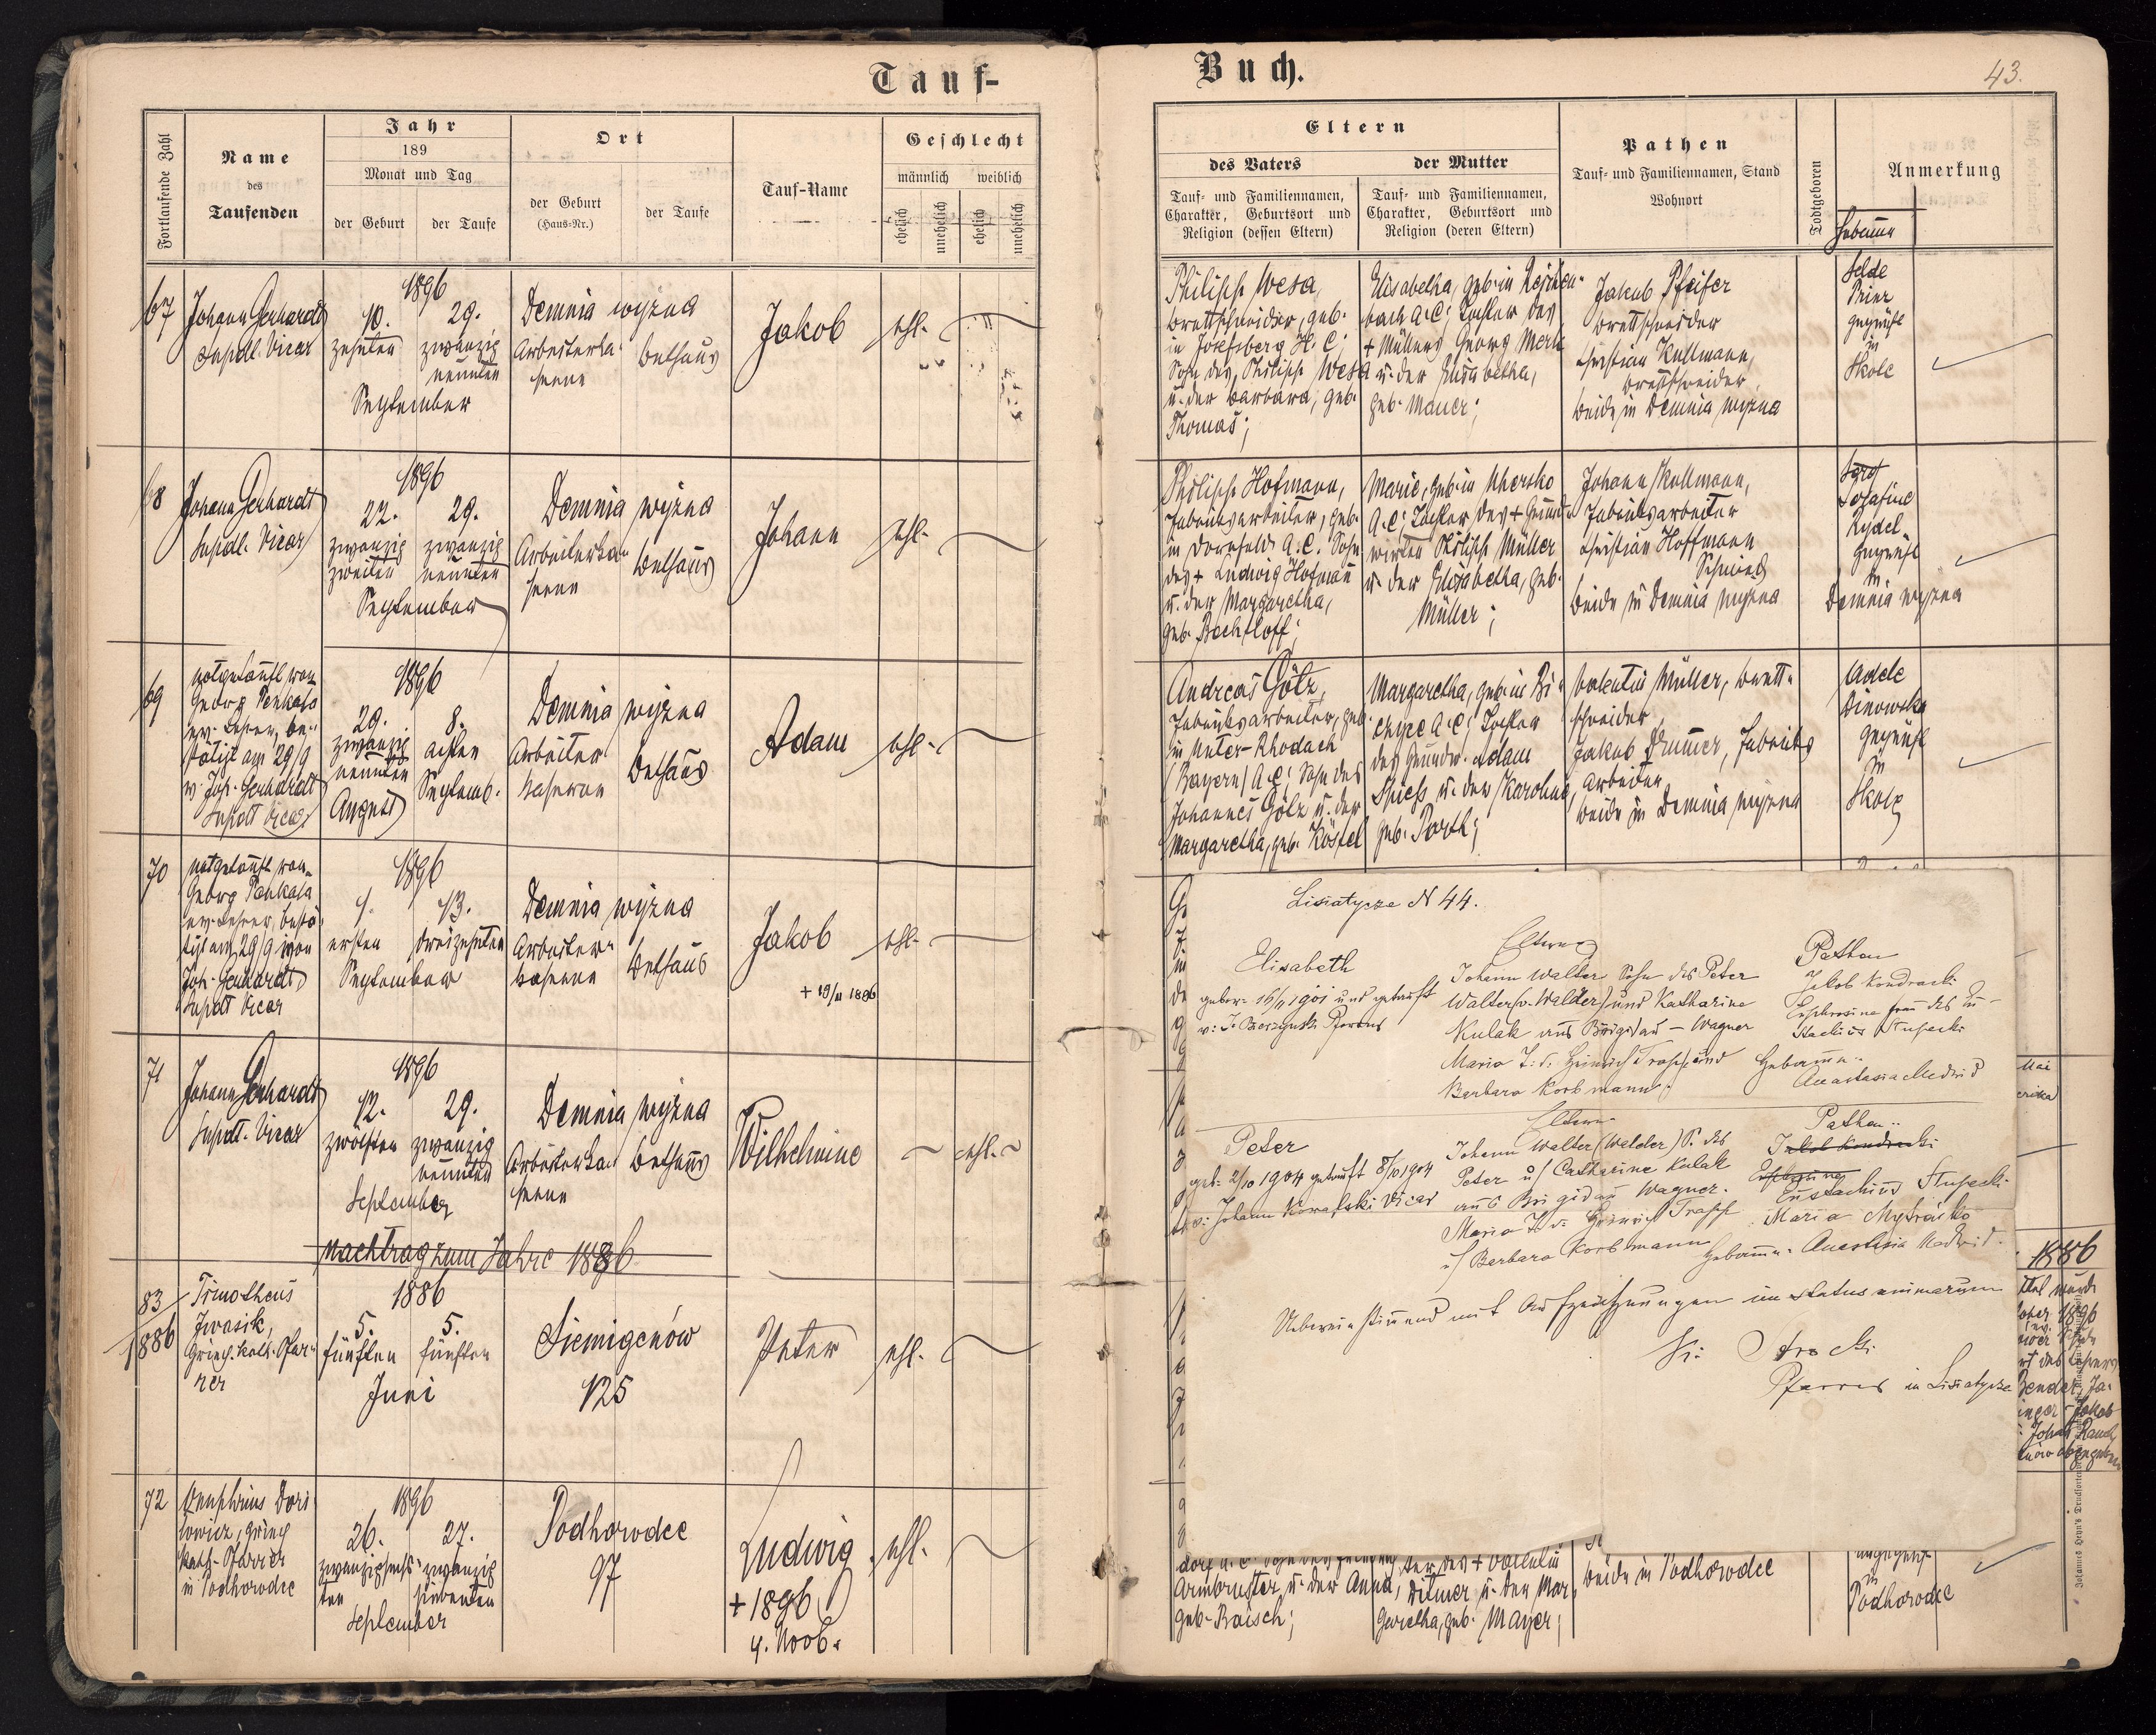 Tauf-
Fortlaufende Zahl
Name
des
Taufenden
Jahr
189
Monat und Tag
der Geburt
der Taufe
Ort
der Geburt
(Haus-Nr.)
der Taufe
Tauf-Name
Geschlecht
männlich weiblich
ehelich
unehelich
ehelich
unehelich
67
Johann Gerhardt
Supdl. Vicar
1896
10. 29.
zehnten zwanzig
neunten
September
Demnia wyżna
Arbeiterka-
serne
Bethaus
Jakob
ehl.
68
Johann Gerhardt
Supdl. Vicar
1896
22. 29.
zwanzig zwanzig
zweiten neunten
September
Demnia wyżna
Arbeiterka-
serne
Bethaus
Johann
ehl.
69
notgetauft von
Georg Penkala
ev. Lehrer, be-
stätigt am 29/9
v. Joh. Gerhardt
Supdt Vicar
1896
29. 8.
zwanzig achten
neunten Septemb.
August
Demnia wyżna
Arbeiter
kaserne
Bethaus
Adam
ehl.
70
notgetauft von
Georg Penkala
ev. Lehrer, bestä-
tigt am 29/9 von
Joh. Gerhardt
Supdt Vicar
1896
1. 13.
ersten dreizehnten
September
Demnia wyżna
Arbeiter-
kaserne
Bethaus
Jakob
+ 19/11 1896
ehl.
71
Johann Gerhardt
Supdt. Vicar
1896
12. 29.
zwölften zwanzig
neunten
September
Demnia wyżna
Arbeiterka-
serne
Bethaus
Wilhelmine
ehl.
Nachtrag zum Jahre 1886
83/1886
Timotheus
Iwasik,
Griech. kath. Pfar-
rer
1886
5. 5.
fünften fünften
Juni
Siemigenów
125
Peter
ehl.
72
Onuphrius Dori
lowicz, griech
kath. Pfarrer
in Podhorodce
1896
26. 27.
zwanzigsechs- zwanzig
ten siebenten
September
Podhorodce
97
Ludwig
+ 1896
4. Novb.
ehl.
Buch.
43.
Eltern
des Vaters
Tauf- und Familiennamen,
Charakter, Geburtsort und
Religion (dessen Eltern)
der Mutter
Tauf- und Familiennamen,
Charakter, Geburtsort und
Religion (deren Eltern)
Pathen
Tauf- und Familiennamen, Stand
Wohnort
Todtgeboren
Anmerkung
Hebamme
Philipp Wesa,
Brettschneider, geb.
in Josefsberg H. C.
Sohn des Philipp Wesa
u. der Barbara, geb.
Thomas;
Elisabetha, geb. in Reichen-
bach A.C.; Tochter des
+ Müllers Georg Merk
u. der Elisabetha,
geb. Mauer;
Jakob Pfeifer
Brettschneider
Christian Kullmann,
Brettschneider
beide in Demnia wyżna
Prinz
geprüft
in
Skole
Philipp Hofmann,
Fabriksarbeiter, geb.
in Dornfeld A.C. Sohn
des + Ludwig Hofmann
u. der Margaretha,
geb. Bechtloff;
Marie, geb. in Uhersko
A.C.; Tochter des + Grund-
wirten Philipp Müller
u. der Elisabetha, geb.
Müller;
Johann Kullmann,
Fabriksarbeiter
Christian Hoffmann
Schmied
beide in Demnia wyżna
Josafine
Rydel
geprüft
in
Demnia wyżna
Andreas Götz,
Fabriksarbeiter, geb.
in Unter-Rhodach
(Bayern) A.C.; Sohn des
Johannes Götz u. der
Margaretha, geb. Köstel
Margaretha, geb. in Bi-
czyce A.C.; Tochter
des Grundw. Adam
Spiess u. der Karoline,
geb. Porth;
Valentin Müller, Brett-
schneider
Jakob Drummer, Fabriks
arbeiter
beide in Demnia wyżna
Adele
Dinowska
geprüft
in
Skole
Lisiatycze N 44.
Elisabeth
gebor. 16/11 1901 und getauft
v: J. Pfarrer
Eltern
Johann Walter Sohn des Peter
Walter (v. Walder) und Katharine
Kulak aus Brigidau - Wagner
Maria T. d. Heinrich Trapp und
Barbara Korbmann.
Pathen
Jakob Kondracki
Euphrosina frau des Eu-
stachius Stupecki
Hebamme:
Anastasia Medwid
Peter
geb. 2/10 1904 getauft 8/10 1904
v: Johann Kowalski Vicar
Eltern
Johann Walter (Walder) S. des
Peter u/ Catharine Kulak
aus Brigidau Wagner.
Maria T. d. Heinrich Trapp
u/ Barbara Korbmann
Pathen:
Jakob Kondracki
Eustachius Stupecki
Maria Mytrasko
Hebamme: Anastasia Medwid.
Uebereinstimmend mit Aufzeichnungen im status animarum
Pfarrer in Lisiatycze
Mai
1886
1896
Bender, Ja-
Jakob
Johann Rauch
Armbruster, u. der Anna,
geb. Raisch;
ter des + Valentin
Ditmer u. der Mar-
garetha, geb. Mayer;
beide in Podhorodce
ungeprüft
in
Podhorodce